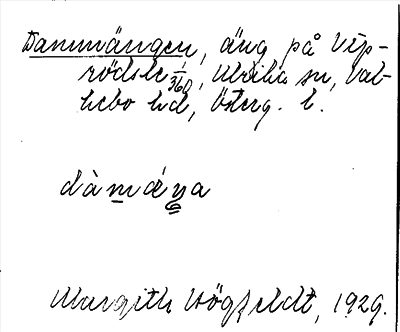 Dammängen, äng på Vip-
rödsle 1/360, Ulrika sn, Val-
kebo hd, Österg. l.
dàmáŋa
Margith Högfeldt, 1929.